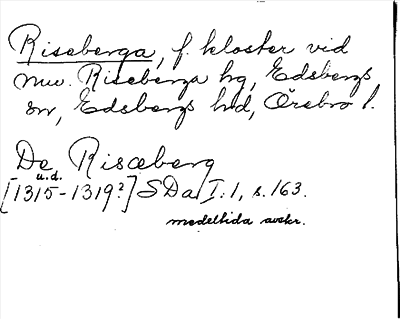 Riseberga, f. kloster vid
nuv. Riseberga hg, Edsbergs
sn, Edsbergs hd, Örebro l.
De Risæberg
u.d.
[1315-1319?] SDa I:1, s.163.
medeltida avskr.